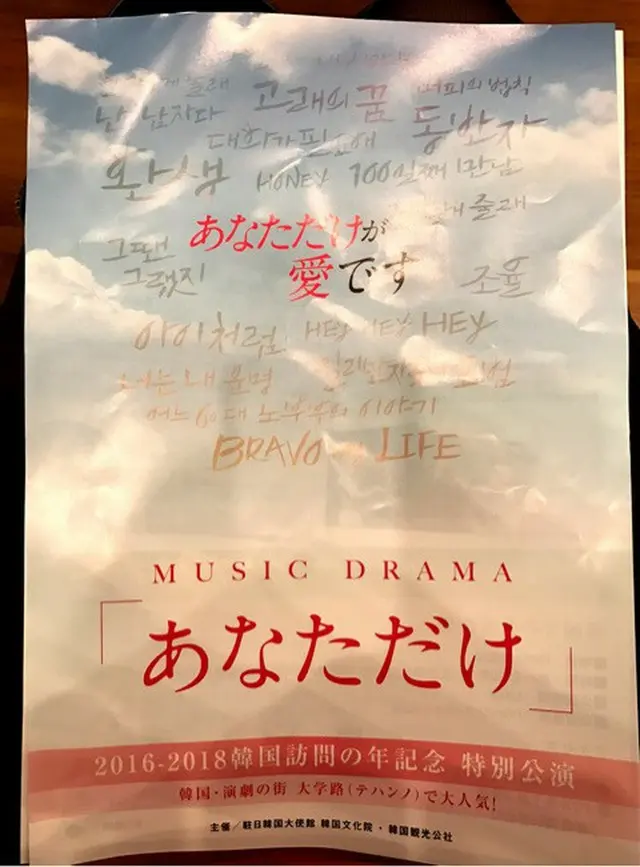 고래의 꿈 머피의 법칙
난 남자다
대화가 필요해 동반자
환생 HONEY 100일째 만남
줄래
あなただけが
그땐 그랬지
愛です
조율
아이처럼 HEY HEY HEY
너는 내 운명
어느 60대 노부부의 이야기
BRAVO MY LIFE
MUSIC DRAMA
「あなただけ」
2016-2018韓国訪問の年記念 特別公演
韓国・演劇の街 大学路(テハンノ)で大人気!
主催/駐日韓国大使館 韓国文化院・韓国観光公社